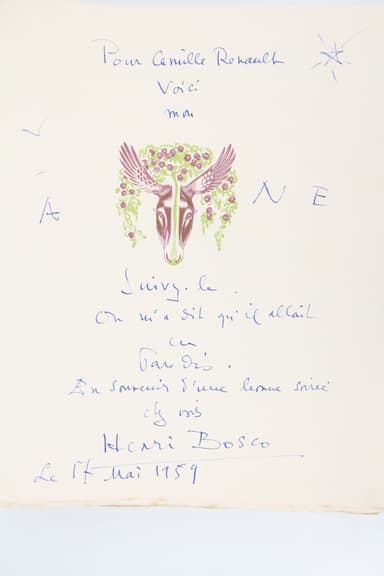 Pour Camille Renault
Voici
mon
A N E
Suivez-le.
On m'a dit qu'il allait
en
Paradis.
En souvenir d'une bonne soirée
chez vous
Henri Bosco
Le 17 Mai 1959